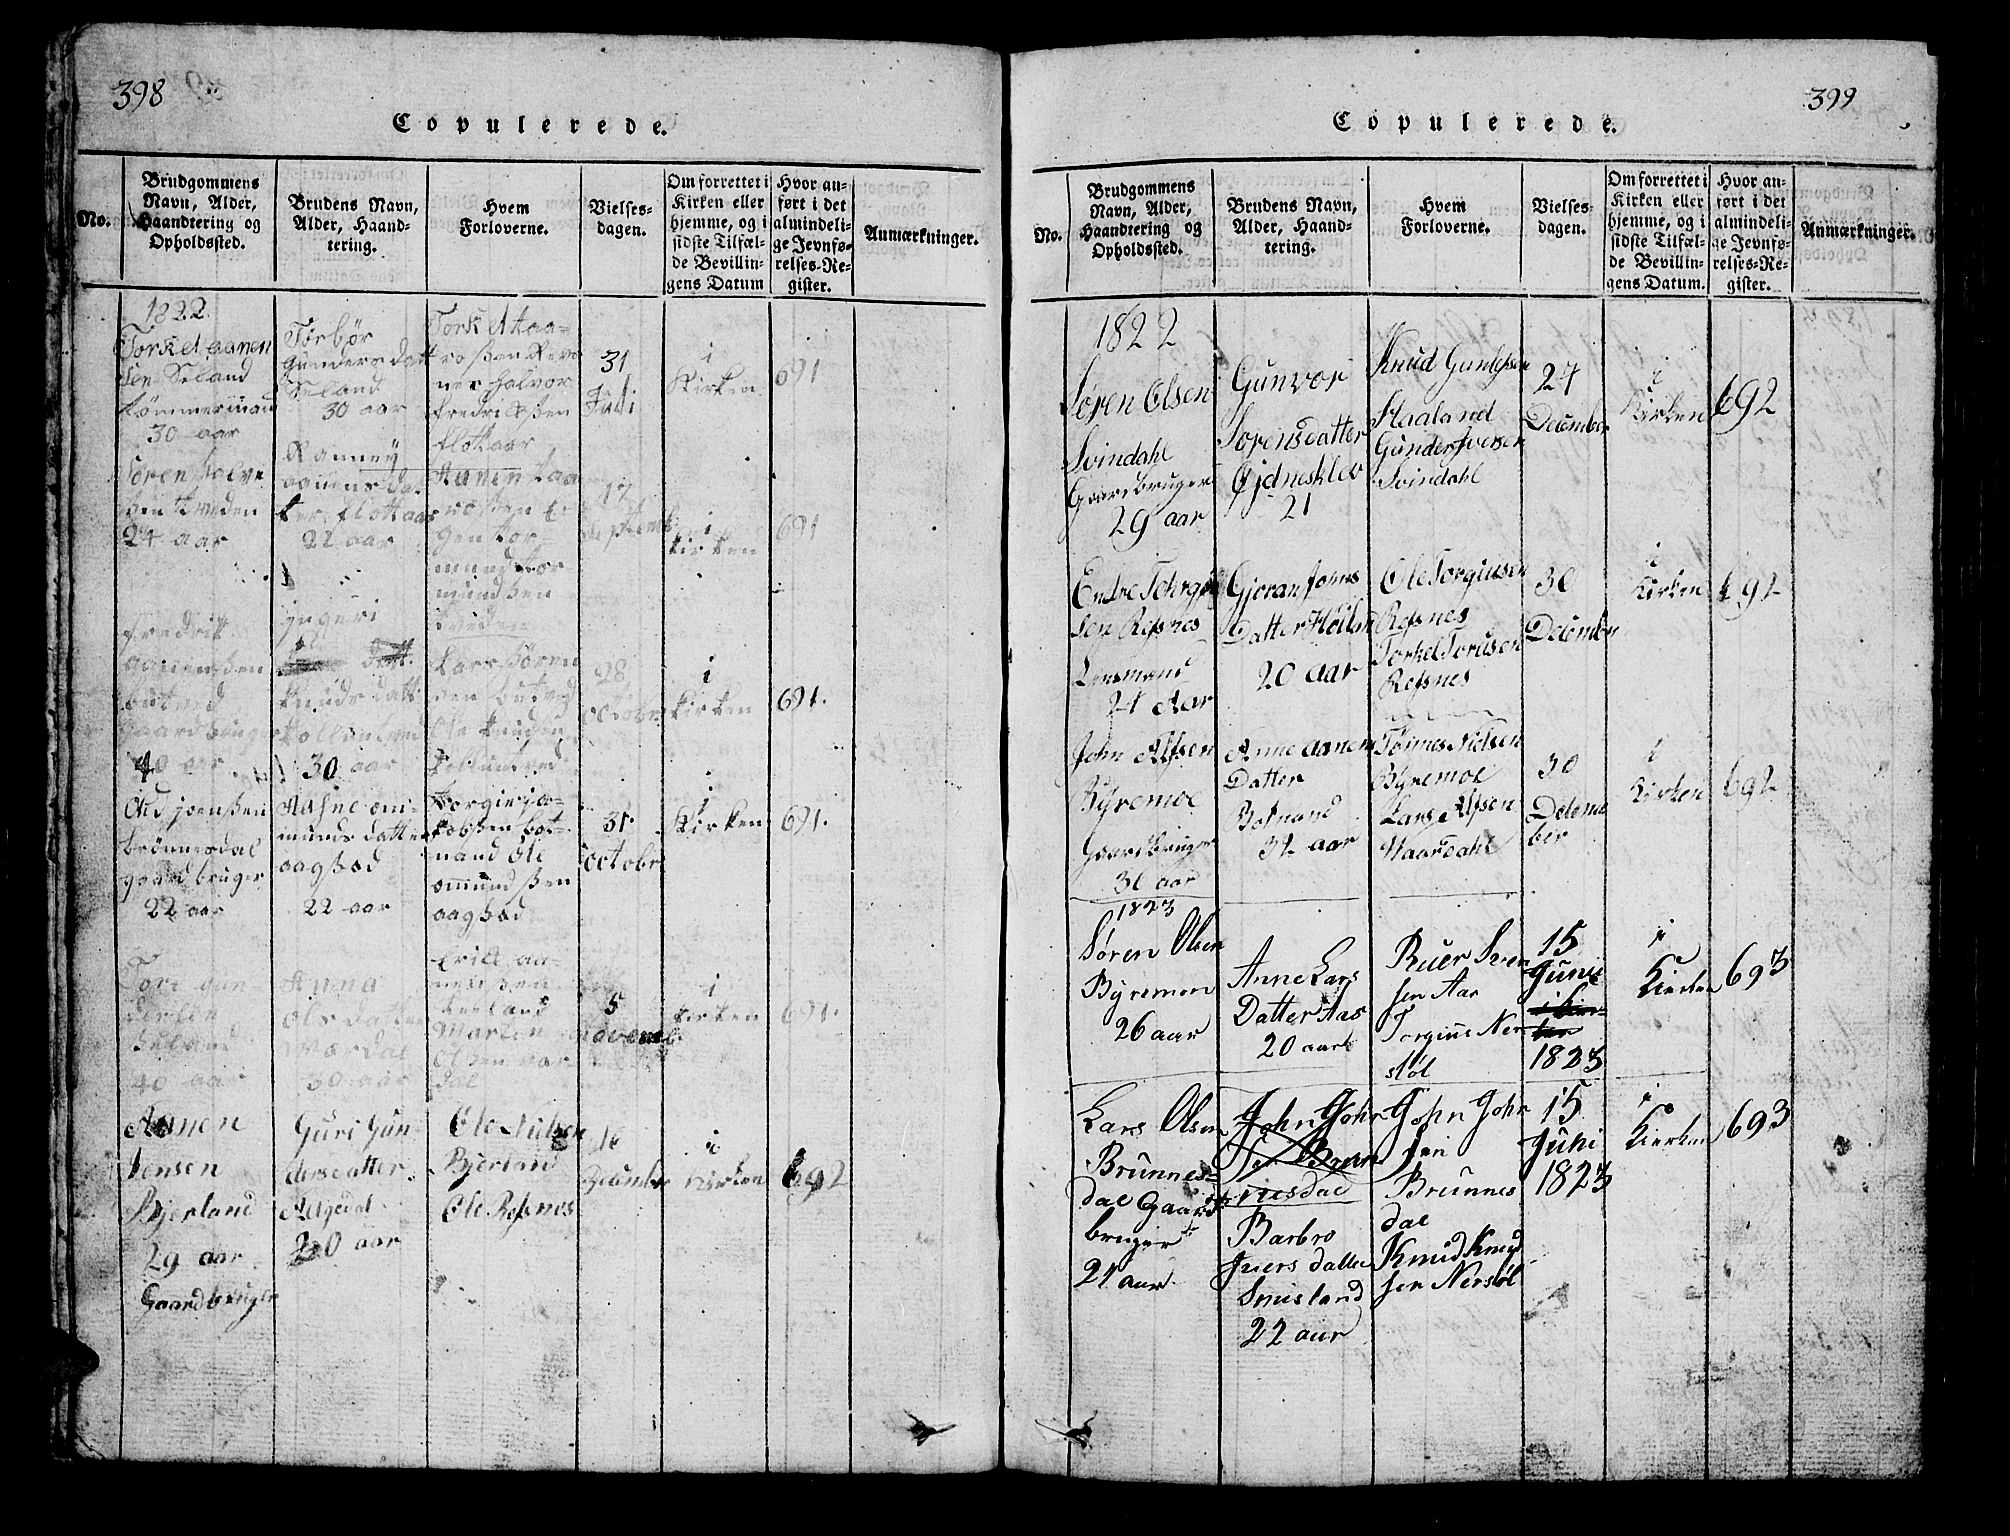 398
Copulerede.
No.
Brudgommens
Navn, Alder,
Haandtering og
Opholdssted.
Brudens Navn,
Alder, Haand-
tering.
Hvem
Forloverne.
Vielses-
dagen.
Om forrettet i
Kirken eller
hjemme, og i
sidste Tilfæl-
de Bevillin-
gens Datum
Hvor an-
ført i det
almindeli-
ge Jevnfø-
relses-Re-
gister.
Anmærkninger.
1822
Torkel aanen
sen Seland
tømmermand
30 aar
Torbør
Gundersdatt
Seland
30 aar
Torkel taa-
Halvor
fredrikssen
flottaar
31
Juli
i
Kirken
691
Søren
24 aar
Ranney
aanensda
ter flottaar
22 aar
Aanen taa
17
i
kirken
691
fredrik
aanensen
butved
gaardbruger
40 aar
jngeri
knudsdatt
30 aar
Lars søren
sen butved
Ole knudsen
28
octobr
i
kirken
691.
Ole joensen
brønnesdal
gaardbruger
22 aar
Aasne om
mundsdatter
aagsod
22 aar
Torgier ja-
kobsen bot-
nand Ole
ommundsen
aagsod
31
octobr
i
Kirken
691.
Tore gun
dersen
seland
40 aar
Anna
Olsdatter
Wardal
30 aar
Erik aa-
nensen
Marten
Olsen var
dal
5
November
i
kirken
691.
Aanen
Jensen
Bjerland
29 aar
Gaardbruger
Guri Gun
dersdatter
Aelgedal
20 aar
Ole Nielsen
Bjerland
Ole Refsnes
16
December
i
Kirken
692
399
Copulerede.
No.
Brudgommens
Navn, Alder,
Haandtering og
Opholdssted.
Brudens Navn,
Alder, Haand-
tering.
Hvem
Forloverne.
Vielses-
dagen.
Om forrettet i
Kirken eller
hjemme, og i
sidste Tilfæl-
de Bevillin-
gens Datum.
Hvor an-
ført i det
almindeli-
ge Jevnfø-
relses-Re-
gister.
Anmærkninger.
1822
Søren Olsen
Svindahl
Gaardbruger
29 aar
Gunvor
Sørensdatter
Øjdnesklev
21
Knud Gunlefsen
Staaland
Gunder Iversen
Svindahl
24
December
i
Kirken
692
Endre Torgiu
sen Refsnes
Lensmand
24 Aar
Gjoran Jons
Datter
20 aar
Ole Torgiusen
Refsnes
Torkel Torusen
Refsnes
30
December
i
Kirken
692
John Alfsen
Byremoe
Gaardbruger
30 aar
Anne aanen
Datter
Botnand
32 aar
Tønnes Nielsen
Byremoe
Lars Alfsen
Haardahl
30
Decem
ber
i
Kirken
692
1823
Søren Olsen
Byremon
26 aar
Anne Lars
Datter Aas
20 aar
Ruer Sven
sen Aas
Torgius Ner
støl
15
Juni
1823
i
Kierken
693
Lars Olsen
Brunnes-
dal Gaard
bruger
21 aar
John John
sen Brun
nesdal
Barbro
Juers datter
Smisland
22 aar
John John
sen
Brunnes
dal
Knud Knud
sen Nerstøl
15
Juni
1823
i
Kierken
693